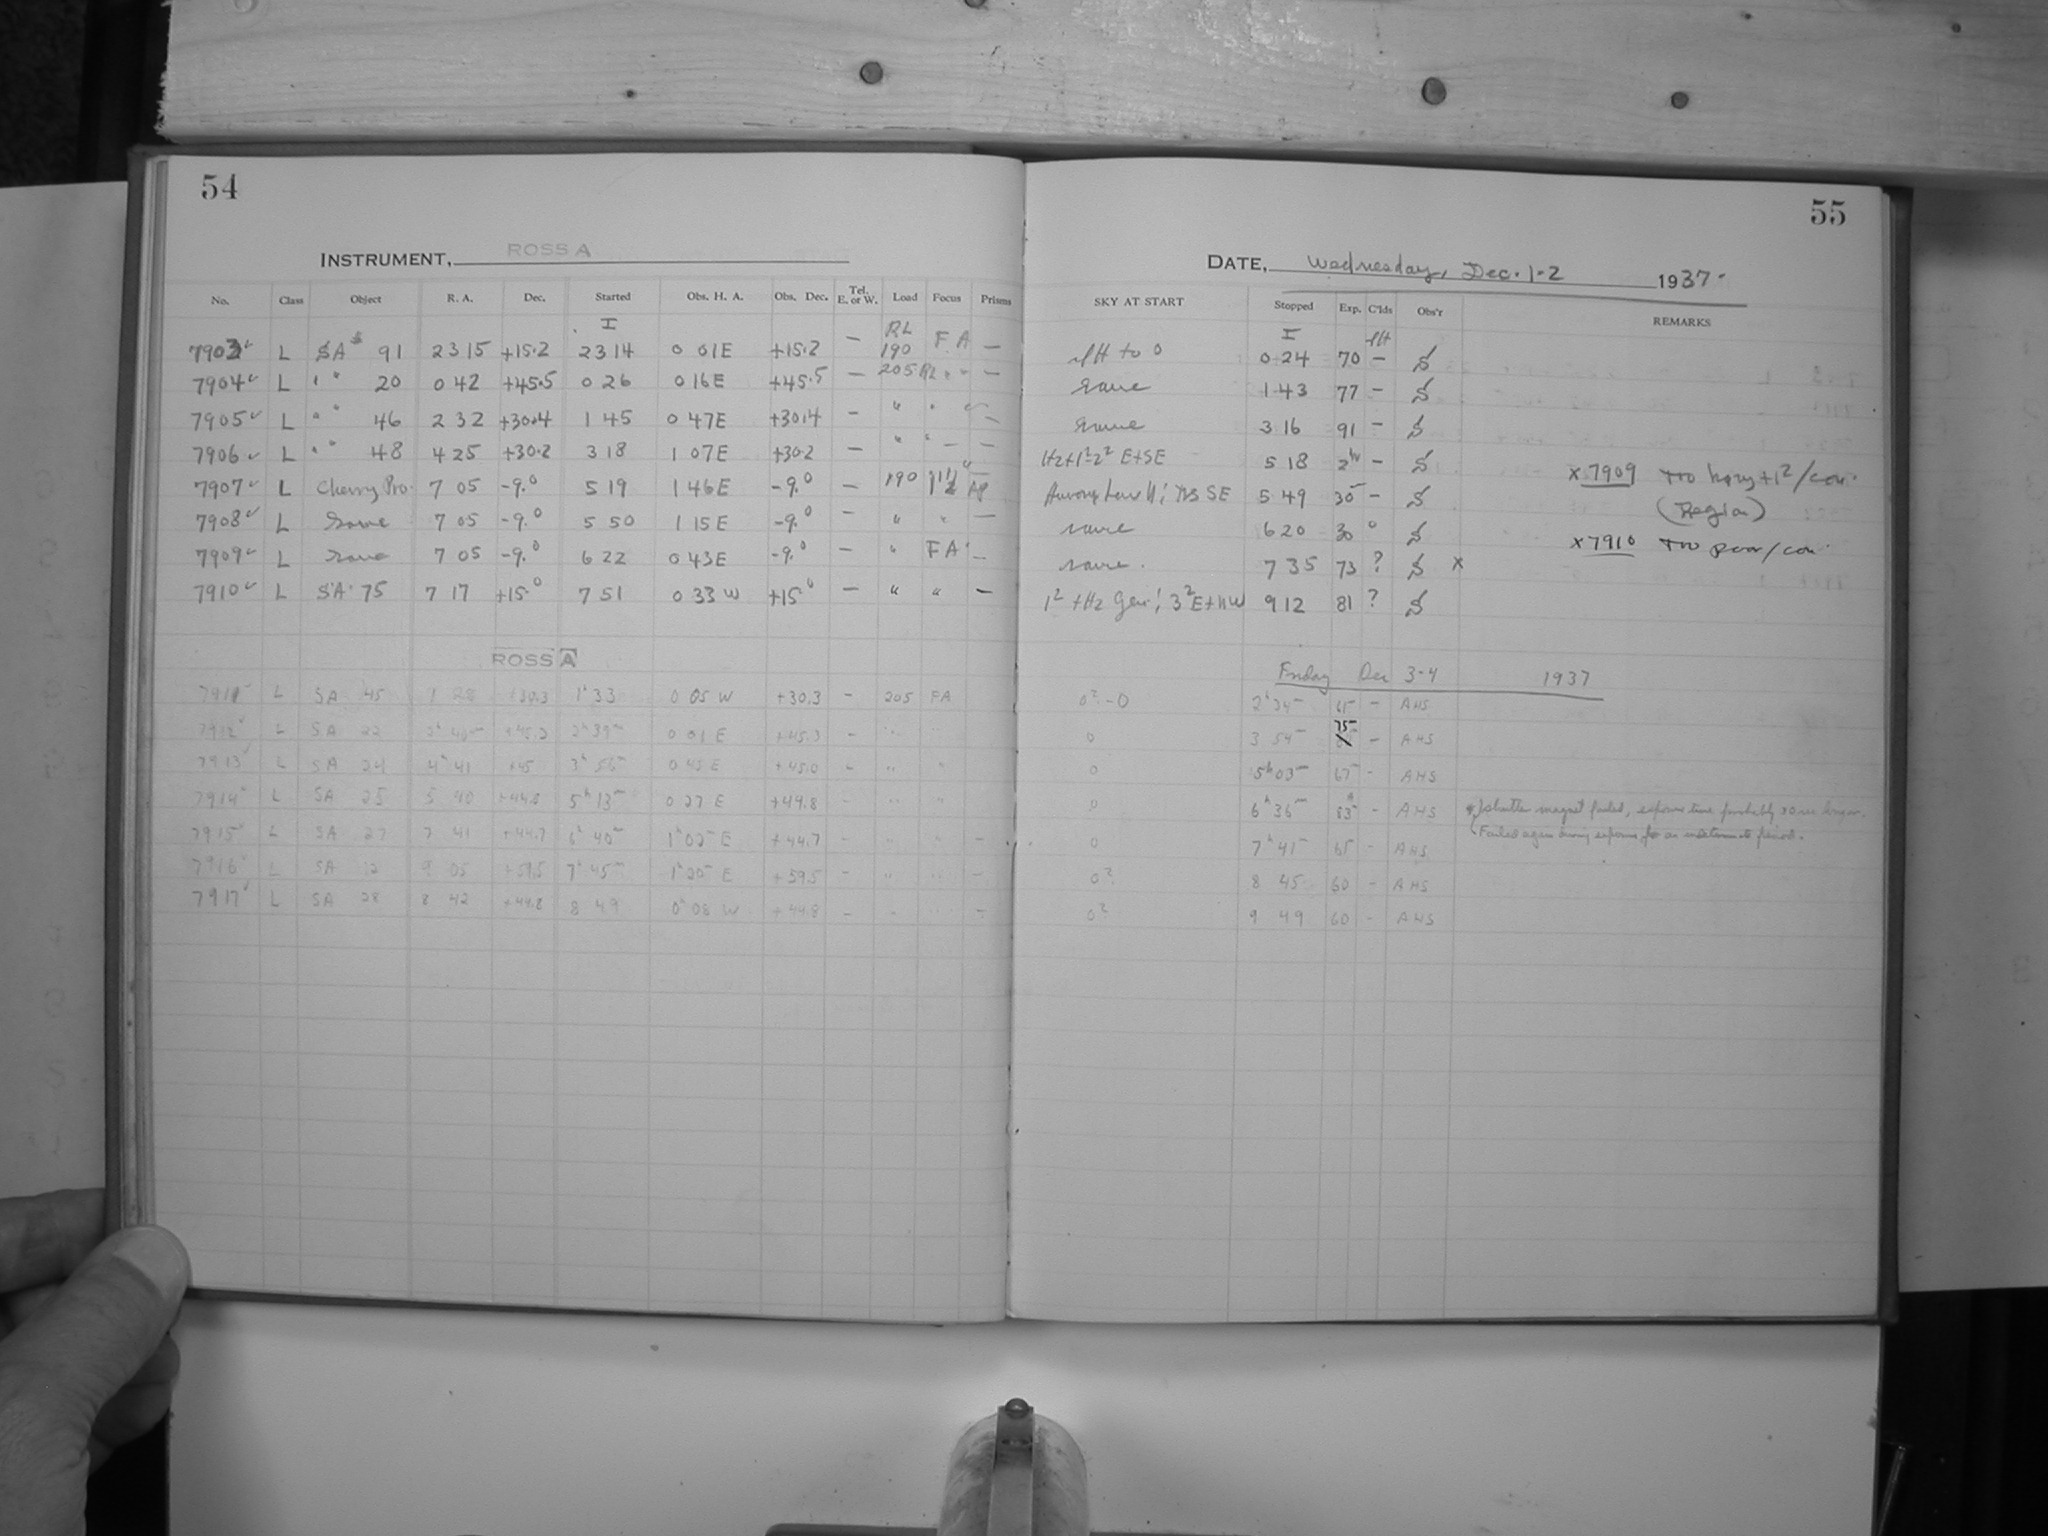 54
INSTRUMENT, ROSS A
No. Class Object R. A. Dec. Started Obs. H. A. Obs. Dec. Tel. E. or W. Load Focus Prisms
I RL
7903 L SA 91 23 15 +15.2 23 14 0 01E +15.2 — 190 F A —
7904 L " " 20 0 42 +45.5 0 26 0 16E +45.5 — 205 RL " " —
7905 L " " 46 2 32 +30.4 1 45 0 47E +30.4 — " " —
7906 L " " 48 4 25 +30.2 3 18 1 07E +30.2 — " " — —
7907 L Cherry Pro. 7 05 -9.0 5 19 1 46E -9.0 — 190
7908 L Same 7 05 -9.0 5 50 1 15E -9.0 — " " —
7909 L Same 7 05 -9.0 6 22 0 43E -9.0 — " F A —
7910 L S.A. 75 7 17 +15.0 7 51 0 33 W +15.0 — " " —
ROSS A
7911 L SA 45 1 28 +30.3 1h 33 0 05 W +30.3 - 205 FA
7912 L SA 22 +45.3 2h 39m 0 01 E +45.3 - " "
7913 L SA 24 4h 41 +45 3h 56m 0 45 E +45.0 - " "
7914 L SA 25 5 40 +44.8 5h 13m 0 27 E +44.8 - " "
7915 L SA 27 7 41 +44.7 6h 40m 1h 02m E +44.7 - " " -
7916 L SA 12 9 05 +59.5 7h 45m 1h 20m E +59.5 - " " -
7917 L SA 28 8 42 +44.8 8 49 0h 08 W +44.8 - " " -
55
DATE, Wednesday, Dec. 1-2 1937.
SKY AT START Stopped Exp. C'lds Obs'r REMARKS
I
to 0 0 24 70 — S
same 1 43 77 — S
same 3 16 91 — S
Hz+1²-2² E+SE 5 18 2h — S
SE 5 49 30 — S
same 6 20 30 0 S
same. 7 35 73 ? S x
1² + Hz Gen; 3² E+NW 9 12 81 ? S
x 7909 too hazy +1²/con.
(Region)
x 7910 too poor/con.
Friday Dec 3-4 1937
0²-0 2h 34m 65 - AHS
0 3 54m 75 - AHS
0 5h 03m 67 - AHS
0 6h 36m 83 - AHS Shutter magnet failed, exposure time probably 30 sec longer.
Failed again during exposure for an indeterminate period.
0 7h 41m 65 - AHS
0² 8 45 60 - AHS
0² 9 49 60 - AHS